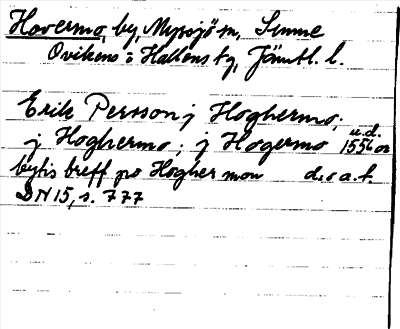 Hovermo, by, Myssjö sn, Sunne
Ovikens o Hallens tg, Jämtl. l.
Erik Persson j Hoghermo;
j Hoghermo; j Hogermo u.d. 1556 or
bytis breff po Hogher mon d:o a.f.
DN 15, s. 777